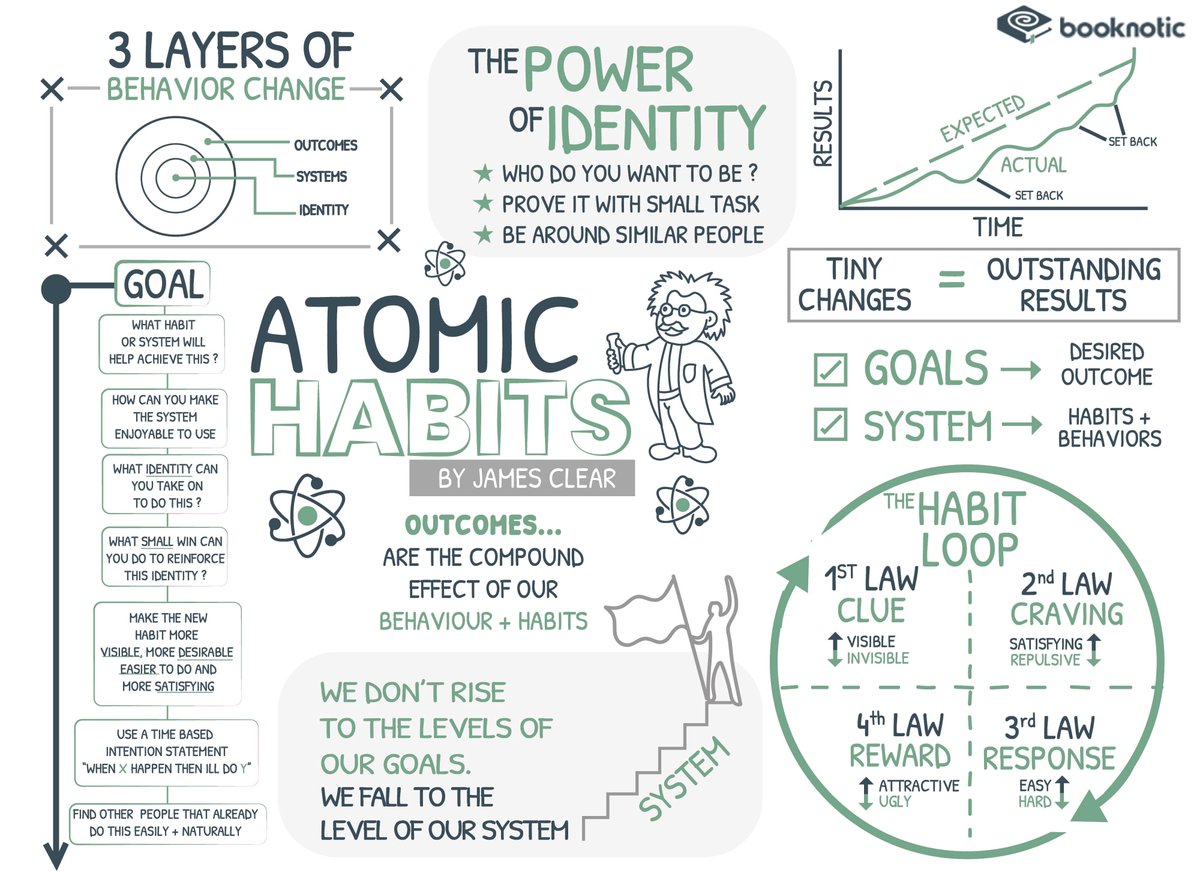 booknotic
3 LAYERS OF
BEHAVIOR CHANGE
OUTCOMES
SYSTEMS
IDENTITY
THE POWER
OF IDENTITY
★ WHO DO YOU WANT TO BE ?
★ PROVE IT WITH SMALL TASK
★ BE AROUND SIMILAR PEOPLE
RESULTS
EXPECTED
ACTUAL
SET BACK
SET BACK
TIME
TINY
CHANGES
=
OUTSTANDING
RESULTS
GOALS → DESIRED
OUTCOME
SYSTEM → HABITS +
BEHAVIORS
GOAL
WHAT HABIT
OR SYSTEM WILL
HELP ACHIEVE THIS ?
HOW CAN YOU MAKE
THE SYSTEM
ENJOYABLE TO USE
WHAT IDENTITY CAN
YOU TAKE ON
TO DO THIS ?
WHAT SMALL WIN CAN
YOU DO TO REINFORCE
THIS IDENTITY ?
MAKE THE NEW
HABIT MORE
VISIBLE, MORE DESIRABLE
EASIER TO DO AND
MORE SATISFYING
USE A TIME BASED
INTENTION STATEMENT
"WHEN X HAPPEN THEN ILL DO Y"
FIND OTHER PEOPLE THAT ALREADY
DO THIS EASILY + NATURALLY
ATOMIC
HABITS
BY JAMES CLEAR
OUTCOMES...
ARE THE COMPOUND
EFFECT OF OUR
BEHAVIOUR + HABITS
WE DON'T RISE
TO THE LEVELS OF
OUR GOALS.
WE FALL TO THE
LEVEL OF OUR SYSTEM
SYSTEM
THE HABIT
LOOP
1ST LAW
CLUE
VISIBLE
INVISIBLE
2nd LAW
CRAVING
SATISFYING
REPULSIVE
4th LAW
REWARD
ATTRACTIVE
UGLY
3rd LAW
RESPONSE
EASY
HARD